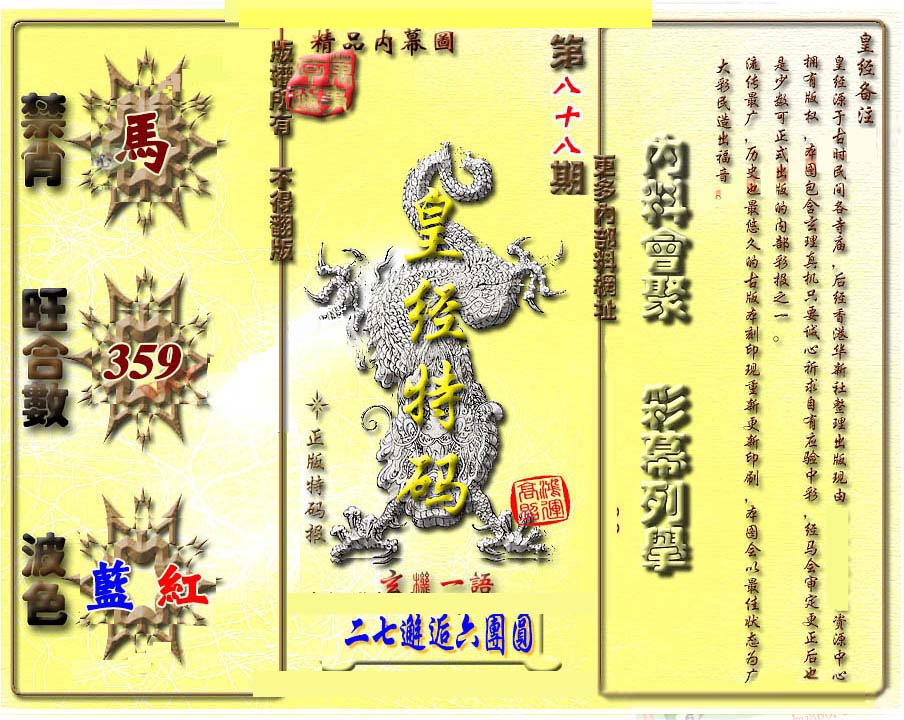 禁肖
馬
旺合數
359
波色
藍 紅
版權所有 不得翻版
精品内幕圖
第八十八期
皇经特码
正版特码报
鴻運
玄機一語
二七邂逅六團圓
更多內部料網址
内料會聚 彩幕列舉
皇经备注
皇经源于古时民间各寺庙,后经香港华新社整理出版现由 资源中心
拥有版权,本图包含玄理真机只要诚心祈求自有应验中彩,经马会审定更正后也
是少数可正式出版的内部彩报之一。
流传最广,历史也最悠久的古版本刻印现重新更新印刷,本图会以最佳状态为广
大彩民造出福音